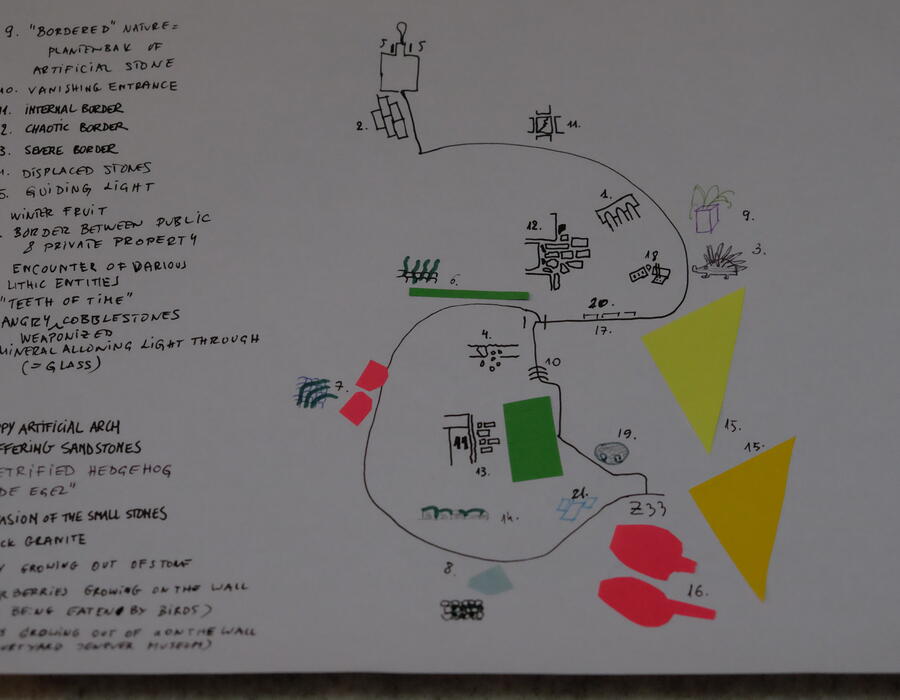 9. "BORDERED" NATURE =
PLANTENBAK OF
ARTIFICIAL STONE
10. VANISHING ENTRANCE
11. INTERNAL BORDER
2. CHAOTIC BORDER
3. SEVERE BORDER
DISPLACED STONES
5. GUIDING LIGHT
WINTER FRUIT
BORDER BETWEEN PUBLIC
& PRIVATE PROPERTY
ENCOUNTER OF DARIOUS
LITHIC ENTITIES
"TEETH OF TIME"
ANGRY COBBLESTONES
WEAPONIZED
MINERAL ALLOWING LIGHT THROUGH
(= GLASS)
PPY ARTIFICIAL ARCH
FFERING SANDSTONES
ETRIFIED HEDGEHOG
DE EGEL"
ASION OF THE SMALL STONES
CK GRANITE
GROWING OUT OF STONE
R BERRIES GROWING ON THE WALL
BEING EATEN BY BIRDS)
GROWING OUT OF ON THE WALL
MUSEUM)
5 5
2.
11.
1.
9.
12.
3.
18
6.
20.
17.
4.
10
7.
15.
19.
15.
11
13.
21.
Z33
14.
8.
16.